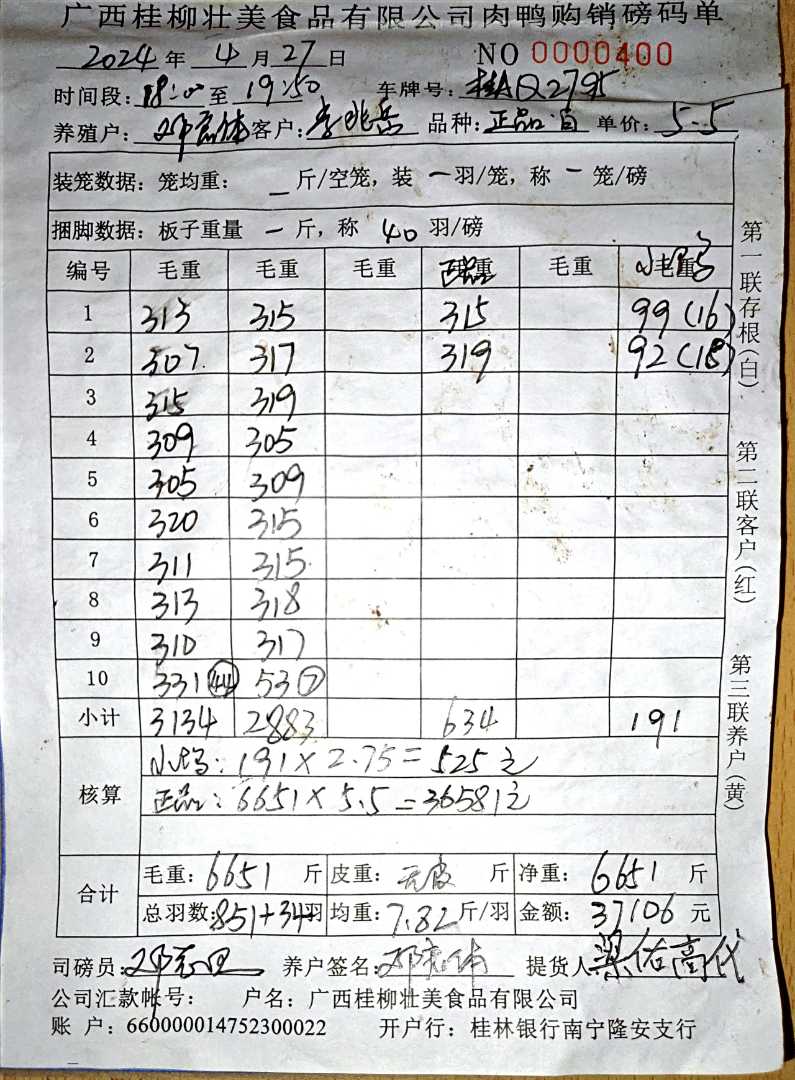 广西桂柳壮美食品有限公司肉鸭购销磅码单
2024 年 4 月 27 日 NO 0000400
时间段: 18:00 至 19:50 车牌号: 桂AQ2795
养殖户: 邓志体 客户: 李兆岳 品种: 正品白 单价: 5.5
装笼数据: 笼均重: 一 斤/空笼, 装 一 羽/笼, 称 一 笼/磅
捆脚数据: 板子重量 一 斤, 称 40 羽/磅
编号 毛重 毛重 毛重 毛重 毛重 小鸭
1 313 315 315 99 (16)
2 307 317 319 92 (18)
3 315 319
4 309 305
5 305 309
6 320 315
7 311 315
8 313 318
9 310 317
10 331 (44) 53 (7)
小计 3134 2883 634 191
核算 小鸭: 191×2.75=525元
正品: 6651×5.5=36581元
合计 毛重: 6651 斤 皮重: 无皮 斤 净重: 6651 斤
总羽数: 851+34 羽 均重: 7.82 斤/羽 金额: 37106 元
司磅员: 养户签名: 提货人 梁佑高代
公司汇款帐号: 户名: 广西桂柳壮美食品有限公司
账 户: 660000014752300022 开户行: 桂林银行南宁隆安支行
第一联存根(白)
第二联客户(红)
第三联养户(黄)